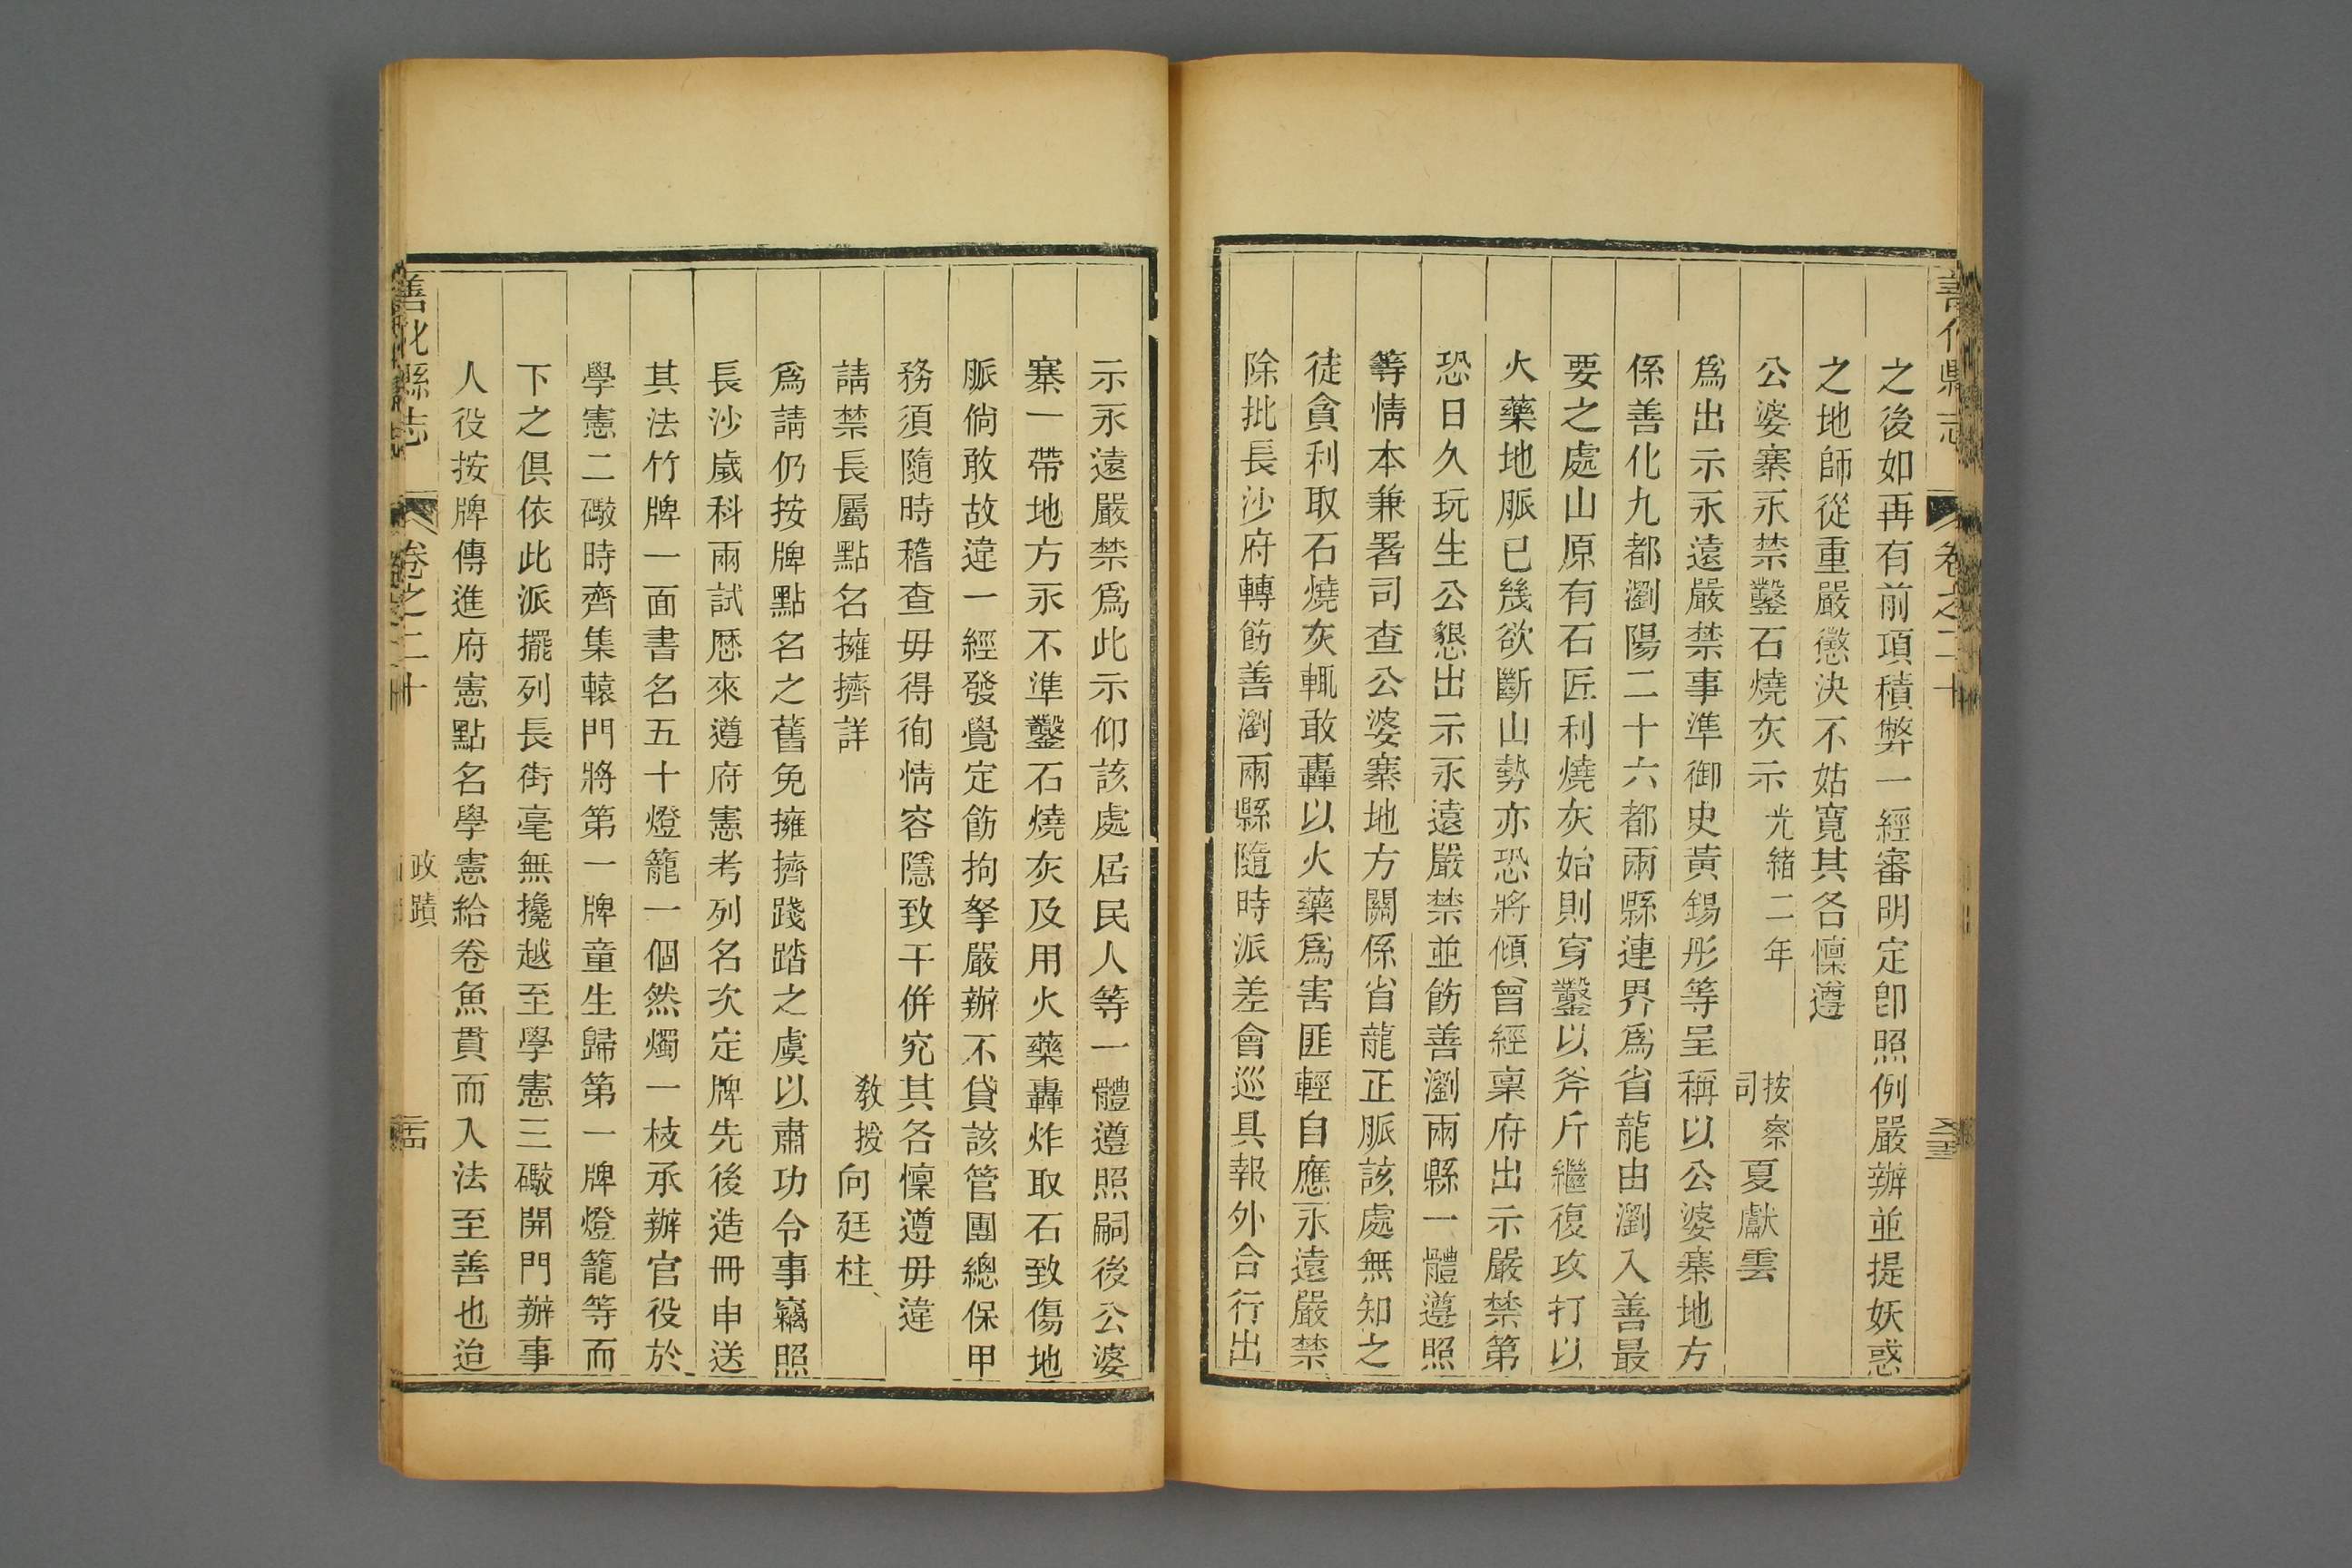 善化縣志 卷之二十
之後如再有前項積弊一經審明定卽照例嚴辦並提妖惑
之地師從重嚴懲決不姑寬其各懍遵
公婆寨永禁鑿石燒灰示 光緒二年 按察司 夏獻雲
爲出示永遠嚴禁事準御史黃錫彤等呈稱以公婆寨地方
係善化九都瀏陽二十六都兩縣連界爲省龍由瀏入善最
要之處山原有石匠利燒灰始則穿鑿以斧斤繼復攻打以
火藥地脈已幾欲斷山勢亦恐將傾曾經稟府出示嚴禁第
恐日久玩生公懇出示永遠嚴禁並飭善瀏兩縣一體遵照
等情本兼署司查公婆寨地方關係省龍正脈該處無知之
徒貪利取石燒灰輒敢轟以火藥爲害匪輕自應永遠嚴禁
除批長沙府轉飭善瀏兩縣隨時派差會巡具報外合行出
示永遠嚴禁爲此示仰該處居民人等一體遵照嗣後公婆
寨一帶地方永不準鑿石燒灰及用火藥轟炸取石致傷地
脈倘敢故違一經發覺定飭拘拏嚴辦不貸該管團總保甲
務須隨時稽查毋得徇情容隱致干併究其各懍遵毋違
請禁長屬點名擁擠詳 敎授 向廷柱
爲請仍按牌點名之舊免擁擠踐踏之虞以肅功令事竊照
長沙歲科兩試歷來遵府憲考列名次定牌先後造冊申送
其法竹牌一面書名五十燈籠一個然燭一枝承辦官役於
學憲二礮時齊集轅門將第一牌童生歸第一牌燈籠等而
下之俱依此派擺列長街毫無攙越至學憲三礮開門辦事
人役按牌傳進府憲點名學憲給卷魚貫而入法至善也迨
善化縣志 卷之二十 政蹟